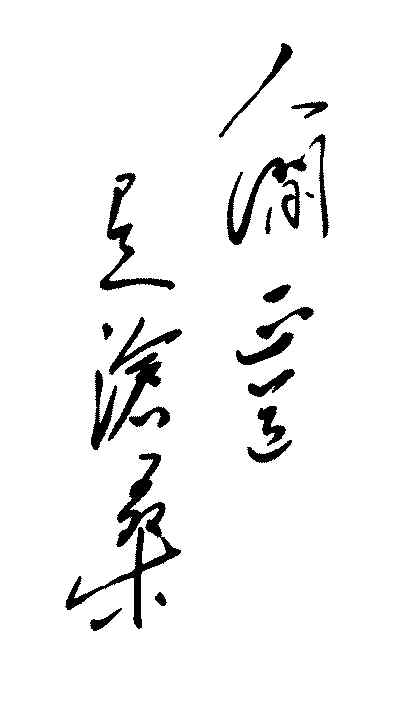 人间正道
是滄桑